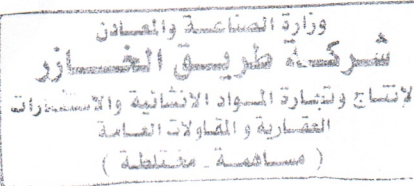 وزارة الصناعـــة والمعـادن
شركـــة طريـــق الخـــازر
لإنتاج وتجارة المـواد الانشائية والاستثمارات
العقـارية و المقـاولات العـامـة
( مســاهمـــة ـ مختلطـة )